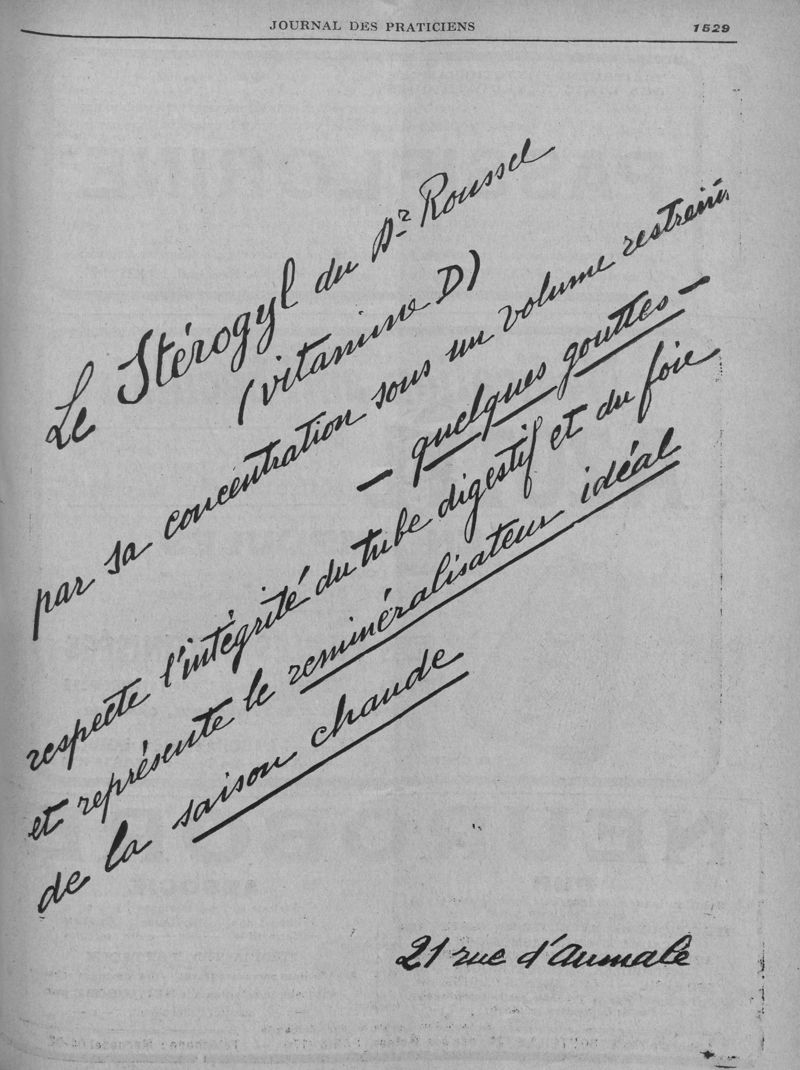 JOURNAL DES PRATICIENS 1529
Le Stérogyl du Dr Roussel
(vitamine D)
par sa concentration sous un volume restreint
— quelques gouttes —
respecte l'intégrité du tube digestif et du foie
et représente le reminéralisateur idéal
de la saison chaude
21 rue d'Aumale